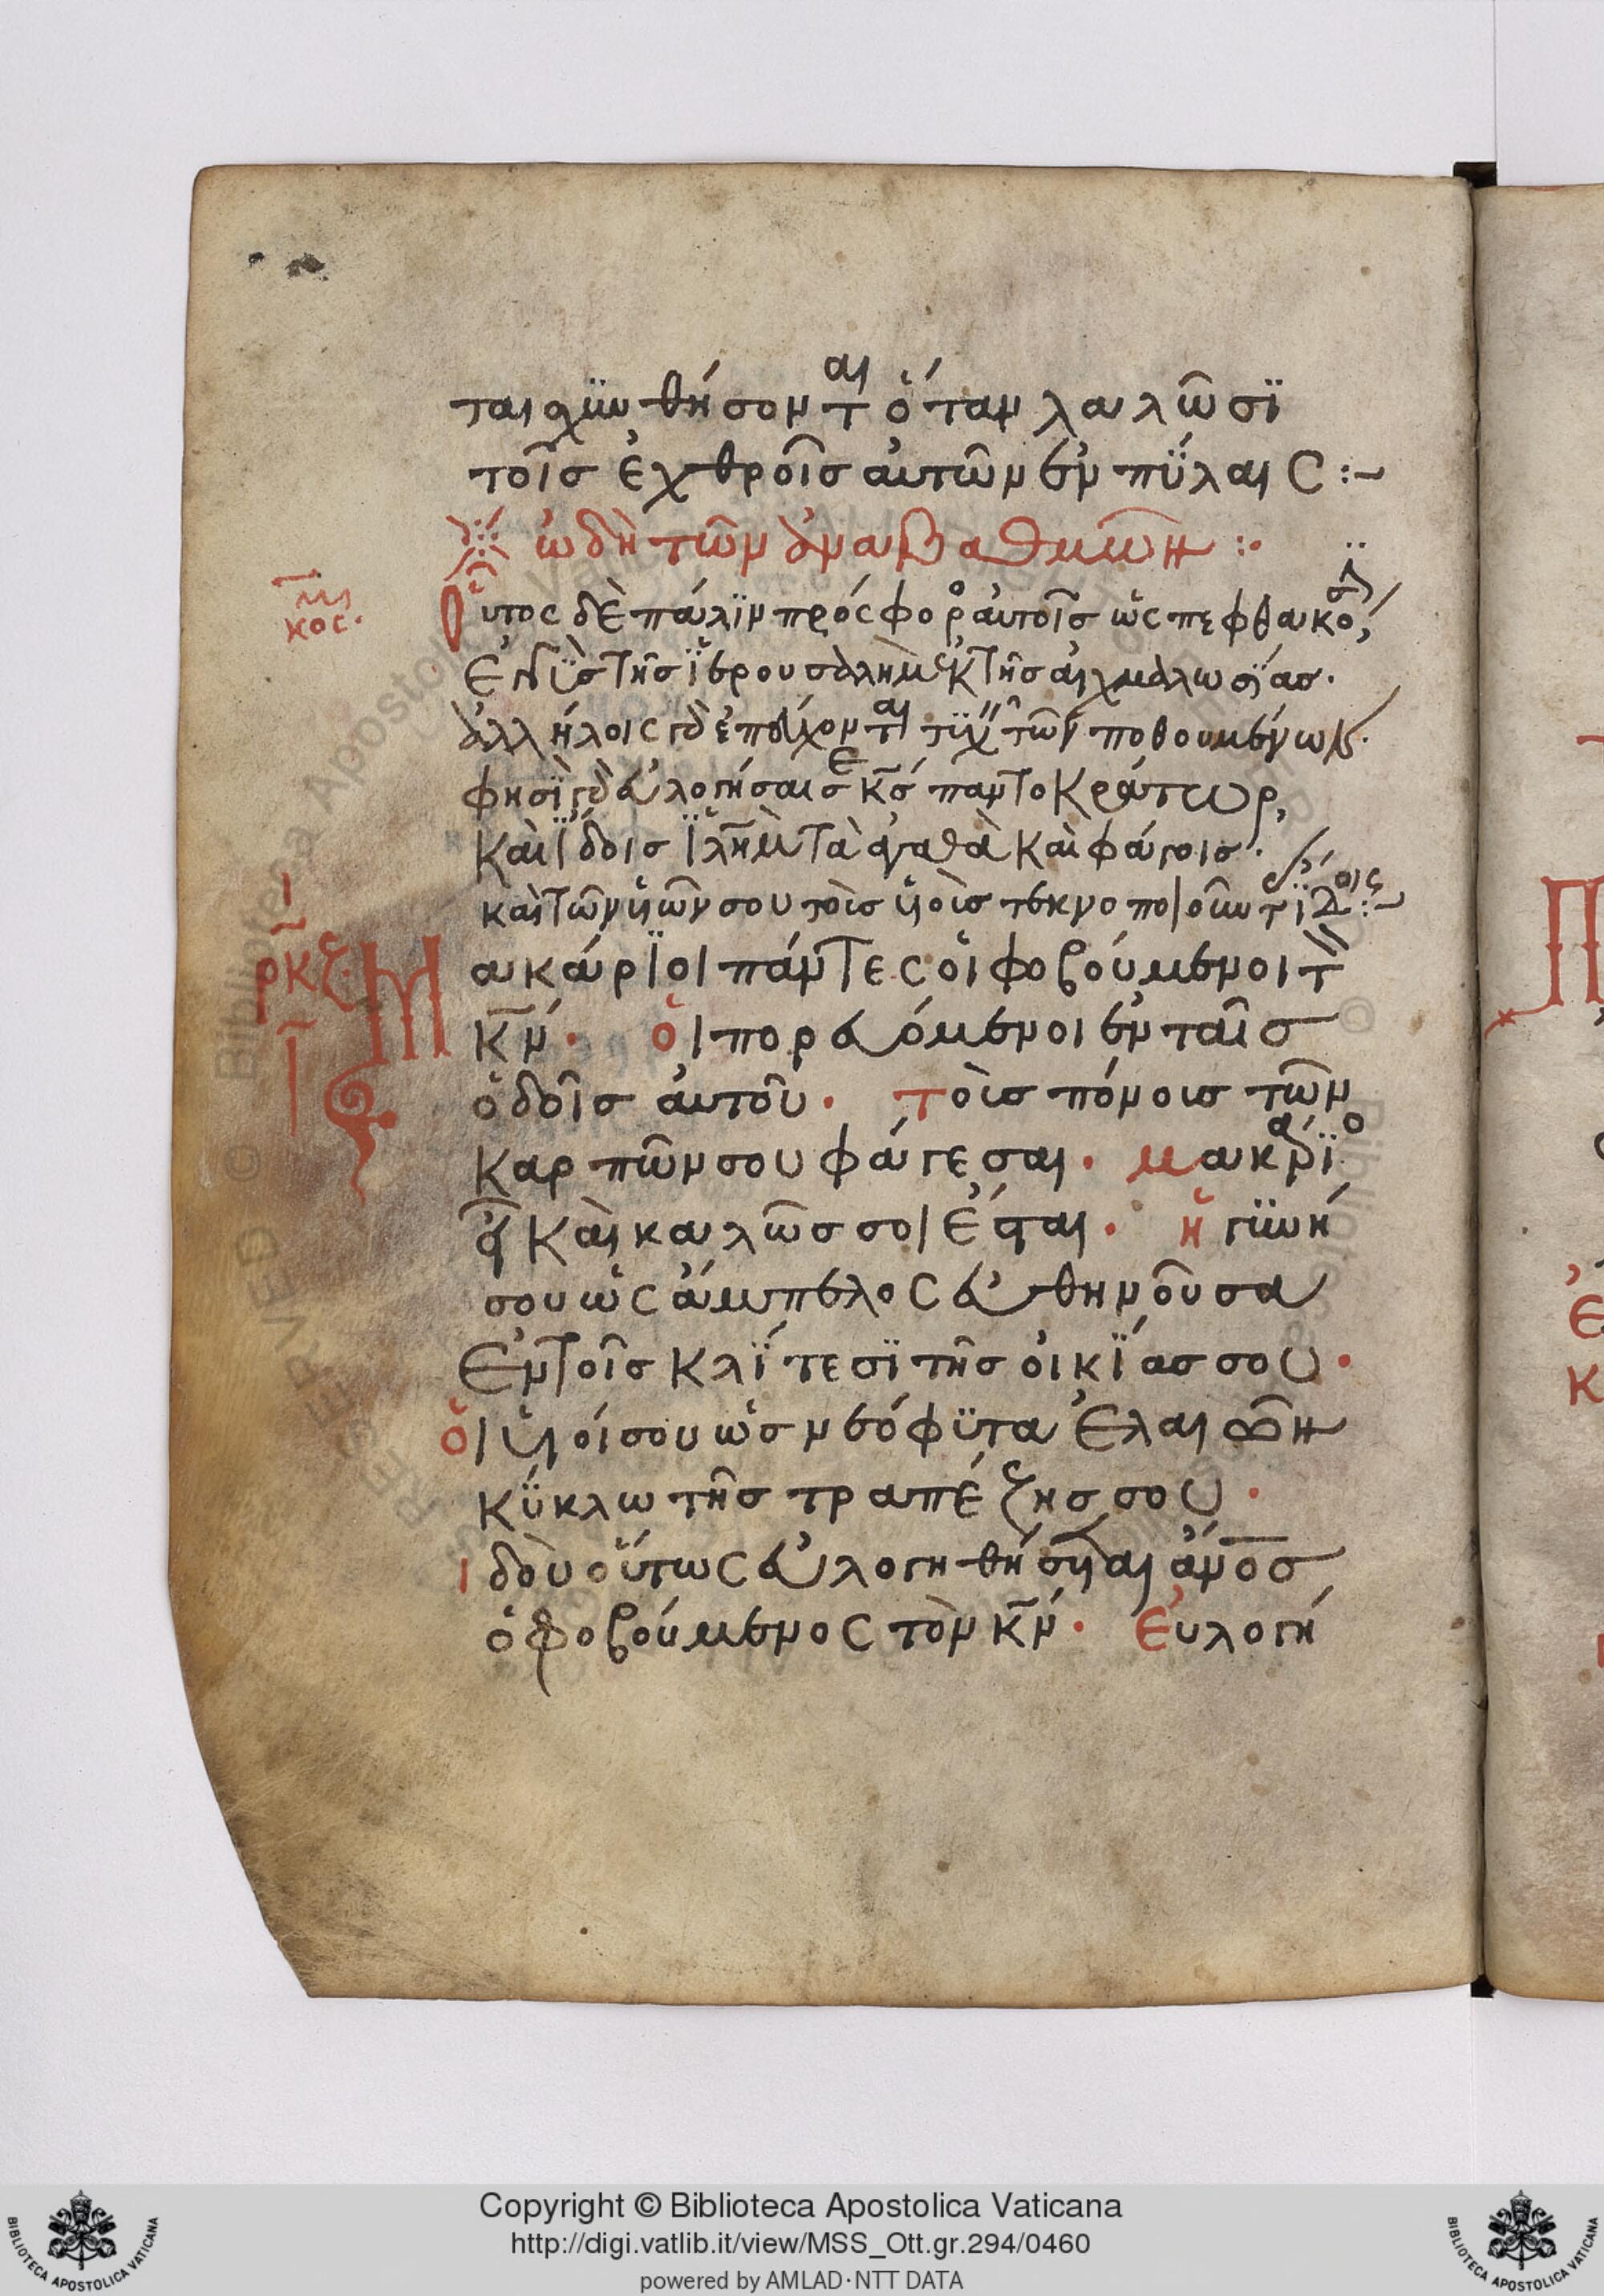 ται αἰσχϋνθήσονται ὅταν λαλῶσϊ
τοῖσ ἐχθροῖσ αὐτῶν ἐν πΰλαις :~
ὠδὴ τῶν ἀναβαθμῶν :·
Οὗτος δὲ πάλϊν πρόςφορ αὐτοῖσ ὡς
τῆσ ϊερουσαλὴμ ἐκ τῆσ αἰχμαλωσϊασ·
ἀλλήλοις τῶν ποθουμένων·
φησϊ εὐλογήσαι σε κ̅σ̅ παντοκράτωρ,
Καὶ ΐδοισ ϊλ̅ημ̅ τὰ ἀγαθὰ καὶ φάγοισ·
καὶ τῶν ὑιῶν σου τοῖσ ὑιοῖσ τεκνοποιοῦν
ρκζ
Μακάρϊοι πάντες οἱ φοβούμενοι τὸν
κ̅ν̅· ὁι πορευόμενοι ἐν ταῖσ
ὁδοῖσ αὐτοῦ· τοὺσ πόνουσ τῶν
Καρπῶν σου φάγεσαι· μακάρϊος
εἶ Καὶ καλῶσ σοι ἔσται· ἡ γϋνή
σου ὡς ἄμπελος εὐθηνοῦσα
Ἐν τοῖσ κλΐτεσϊ τῆσ οἰκΐασ σου·
ὁι ὑιοί σου ὡσ νεόφϋτα ἐλαιῶν
κΰκλω τῆσ τραπέζησ σου·
ιδοὺ οὕτως εὐλογηθήσεται ἄν̅ο̅σ̅
ὁ φοβούμενος τὸν κ̅ν̅· Ἐυλογή
Copyright © Biblioteca Apostolica Vaticana
http://digi.vatlib.it/view/MSS_Ott.gr.294/0460
powered by AMLAD·NTT DATA
BIBLIOTECA APOSTOLICA VATICANA
BIBLIOTECA APOSTOLICA VATICANA